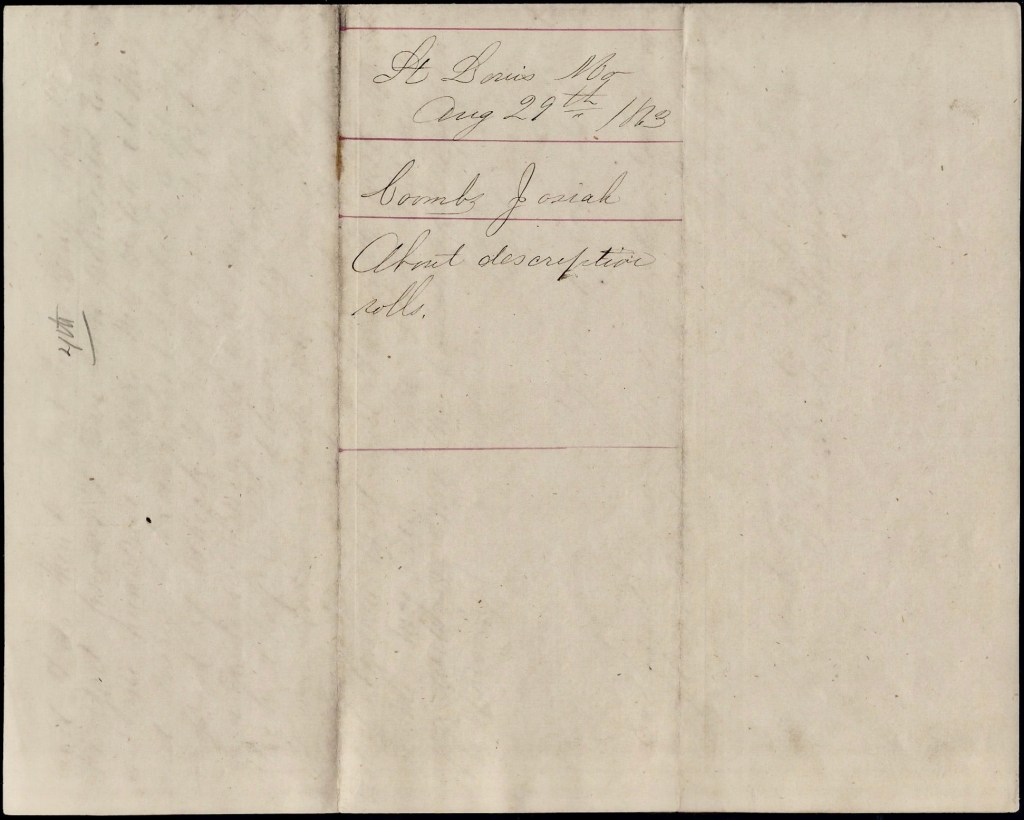 St Louis Mo
Aug 29th 1863
Coombs Josiah
About descriptive
rolls.
4th